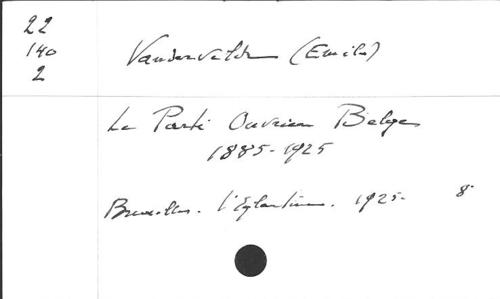 22
140
2
Vandervelde (Emile)
Le Parti Ouvrier Belge
1885-1925
Bruxelles. l'Eglantine. 1925. 8°